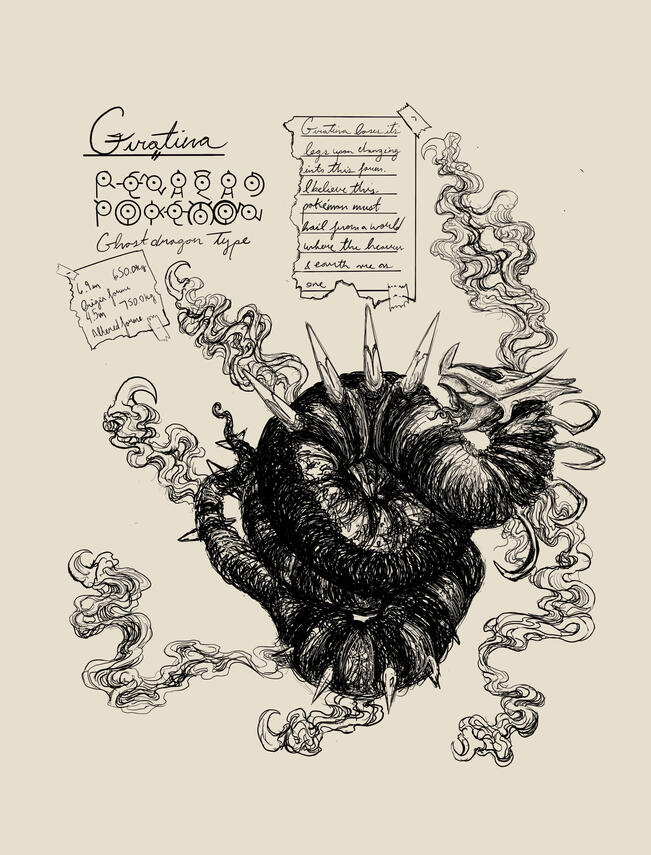 Giratina
Ghost dragon Type
6.9m 650.0kg
Origin forme
4.5m 750.0kg
Altered forme
Giratina loses its
legs upon changing
into this form.
I believe this
pokémon must
hail from a world
where the heaven
& earth are as
one